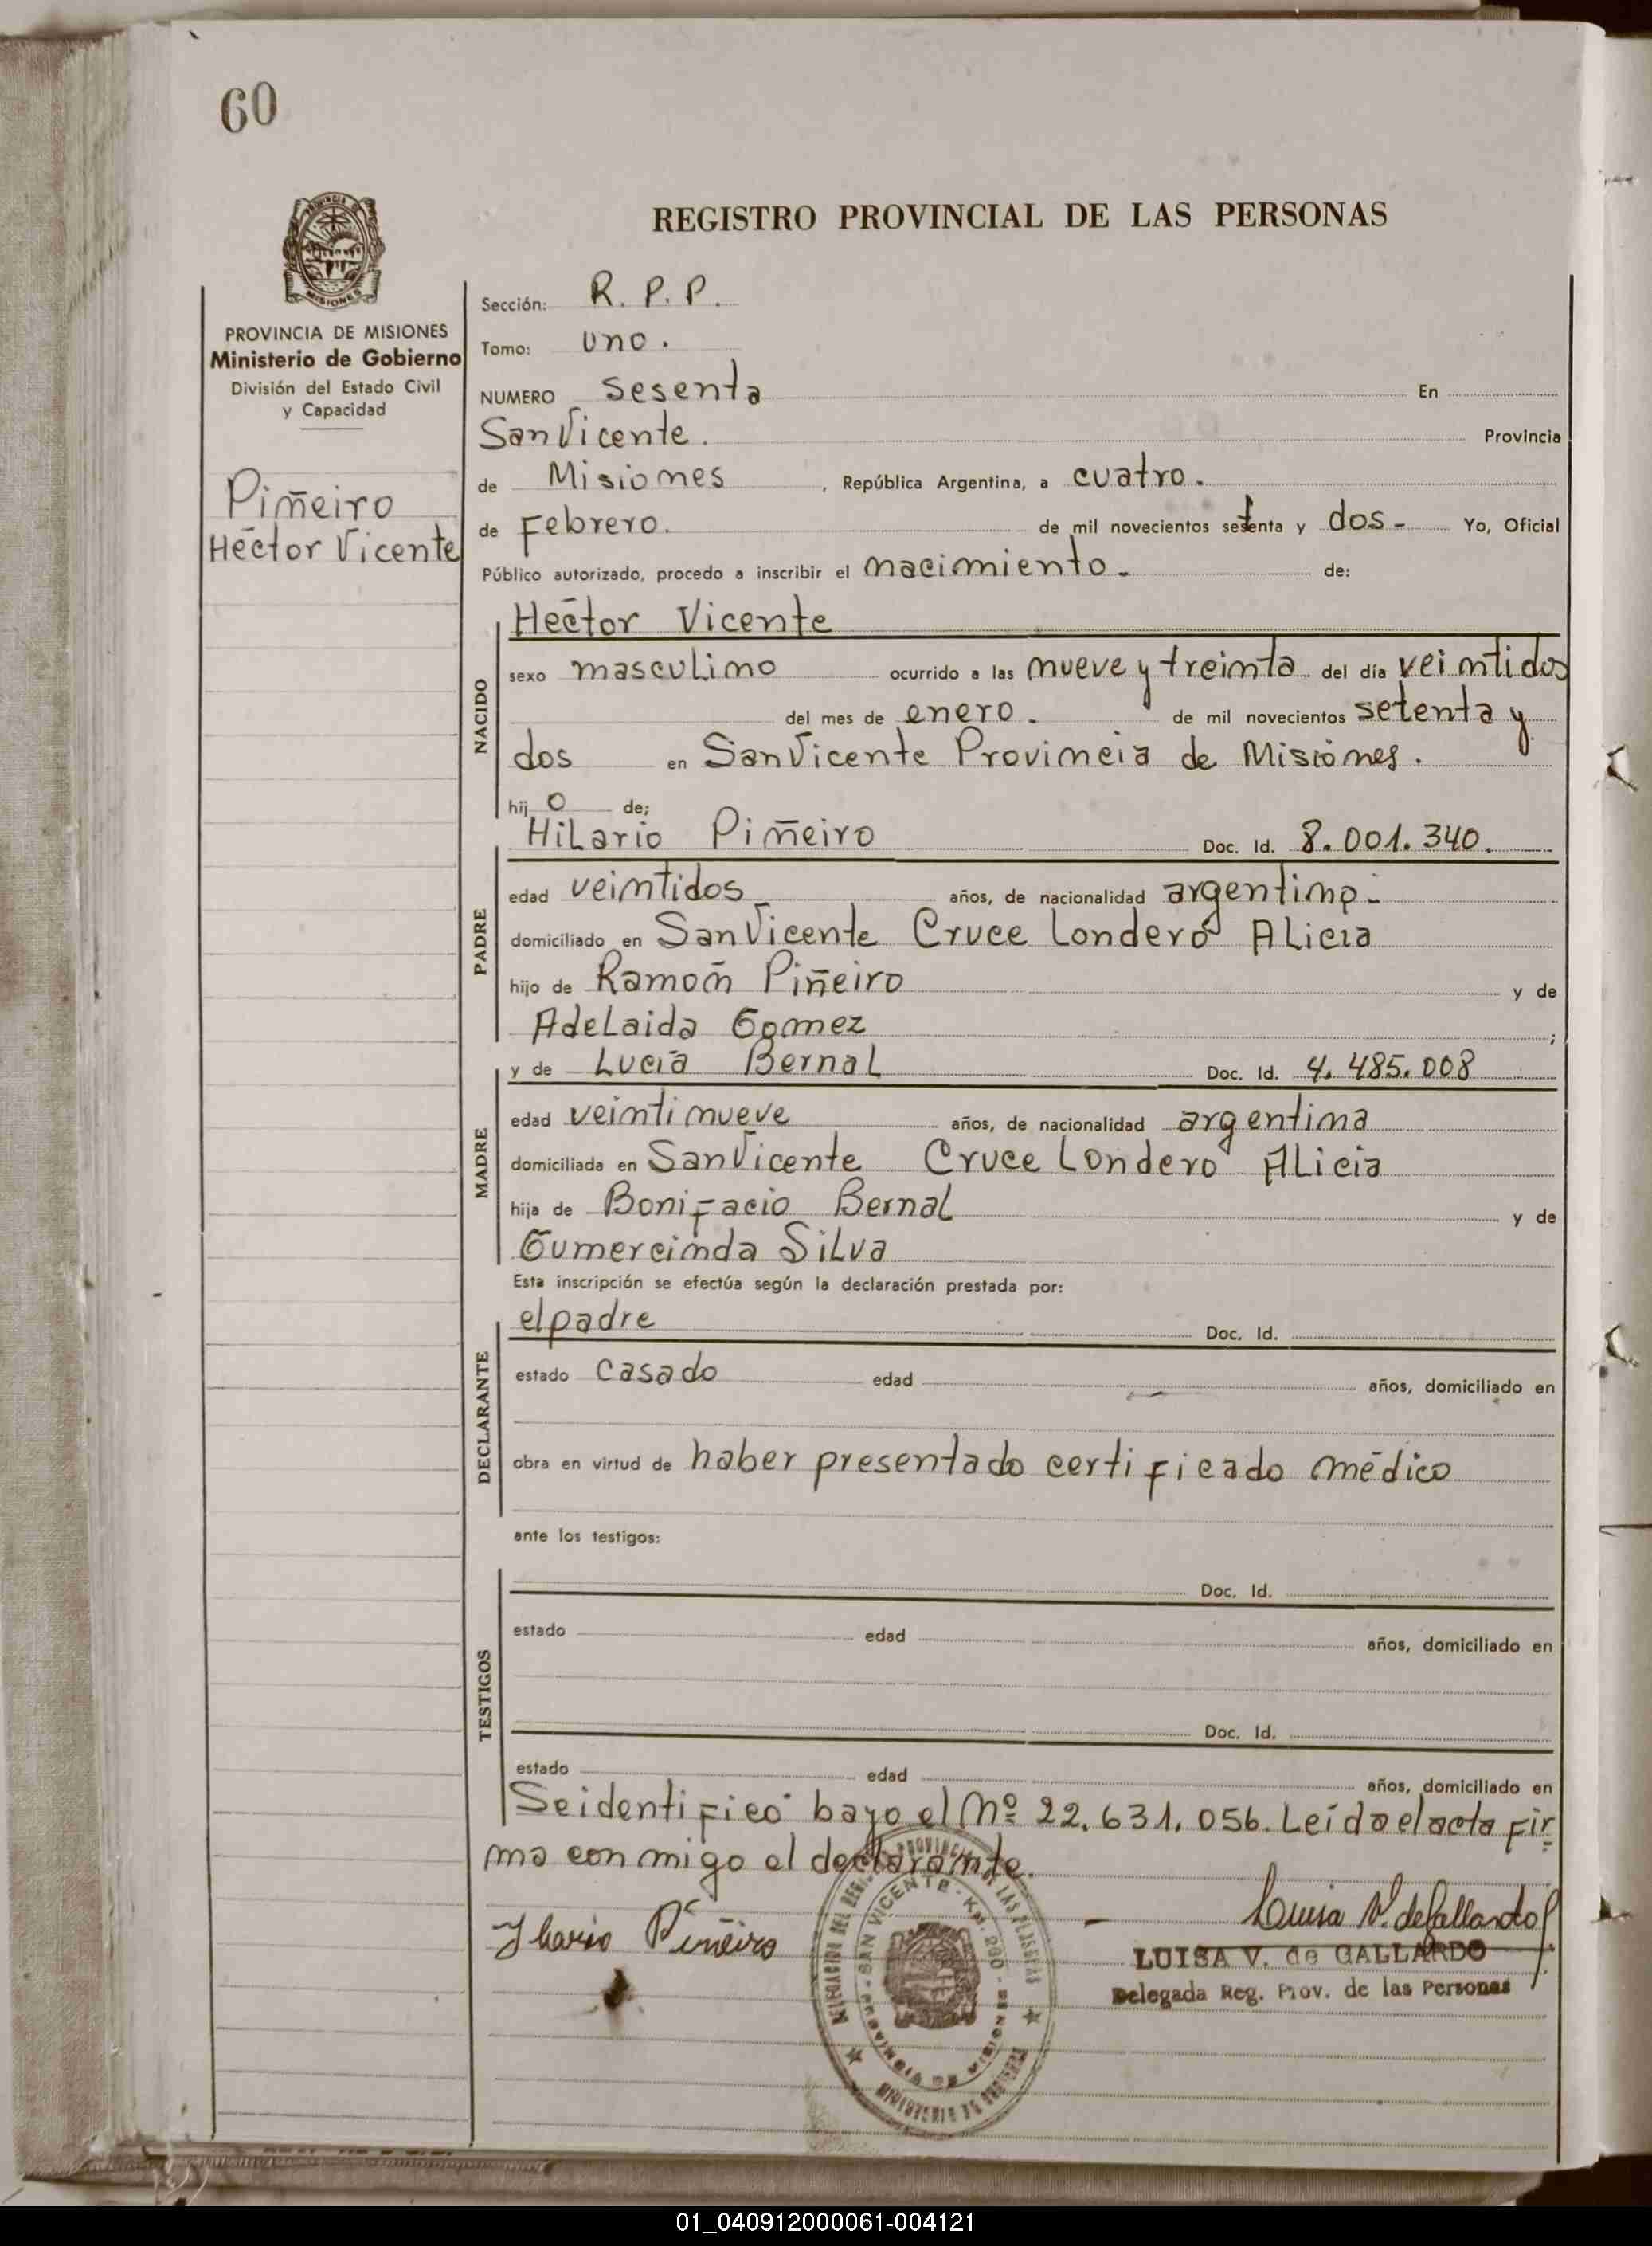 60
PROVINCIA DE
MISIONES
REGISTRO PROVINCIAL DE LAS PERSONAS
PROVINCIA DE MISIONES
Ministerio de Gobierno
División del Estado Civil
y Capacidad
Piñeiro
Héctor Vicente
Sección: R. P. P.
Tomo: uno.
NUMERO Sesenta En
San Vicente. Provincia
de Misiones, República Argentina, a cuatro.
de Febrero. de mil novecientos setenta y dos- Yo, Oficial
Público autorizado, procedo a inscribir el nacimiento. de:
NACIDO
Héctor Vicente
sexo masculino ocurrido a las nueve y treinta del día veintidos
del mes de enero. de mil novecientos setenta y
dos en San Vicente Provincia de Misiones.
hijo de;
PADRE
Hilario Piñeiro Doc. Id. 8.001.340.
edad veintidos años, de nacionalidad argentino-
domiciliado en San Vicente Cruce Londero Alicia
hijo de Ramón Piñeiro y de
Adelaida Gomez ;
MADRE
y de Lucía Bernal Doc. Id. 4.485.008
edad veintinueve años, de nacionalidad argentina
domiciliada en San Vicente Cruce Londero Alicia
hija de Bonifacio Bernal y de
Gumercinda Silva
Esta inscripción se efectúa según la declaración prestada por:
DECLARANTE
el padre Doc. Id.
estado casado edad años, domiciliado en
obra en virtud de haber presentado certificado médico
ante los testigos:
TESTIGOS
Doc. Id.
estado edad años, domiciliado en
Doc. Id.
estado edad años, domiciliado en
Se identificó bayo el Nº 22.631.056. Leída el acta fir
ma conmigo el declarante.
Ilario Piñeiro
DELEGACION DEL REGISTRO PROVINCIAL DE LAS PERSONAS
SAN VICENTE - KM. 290 -
PROVINCIA DE MISIONES
MINISTERIO DE GOBIERNO
Luisa V. de Gallardo
LUISA V. de GALLARDO
Delegada Reg. Prov. de las Personas
01_040912000061-004121